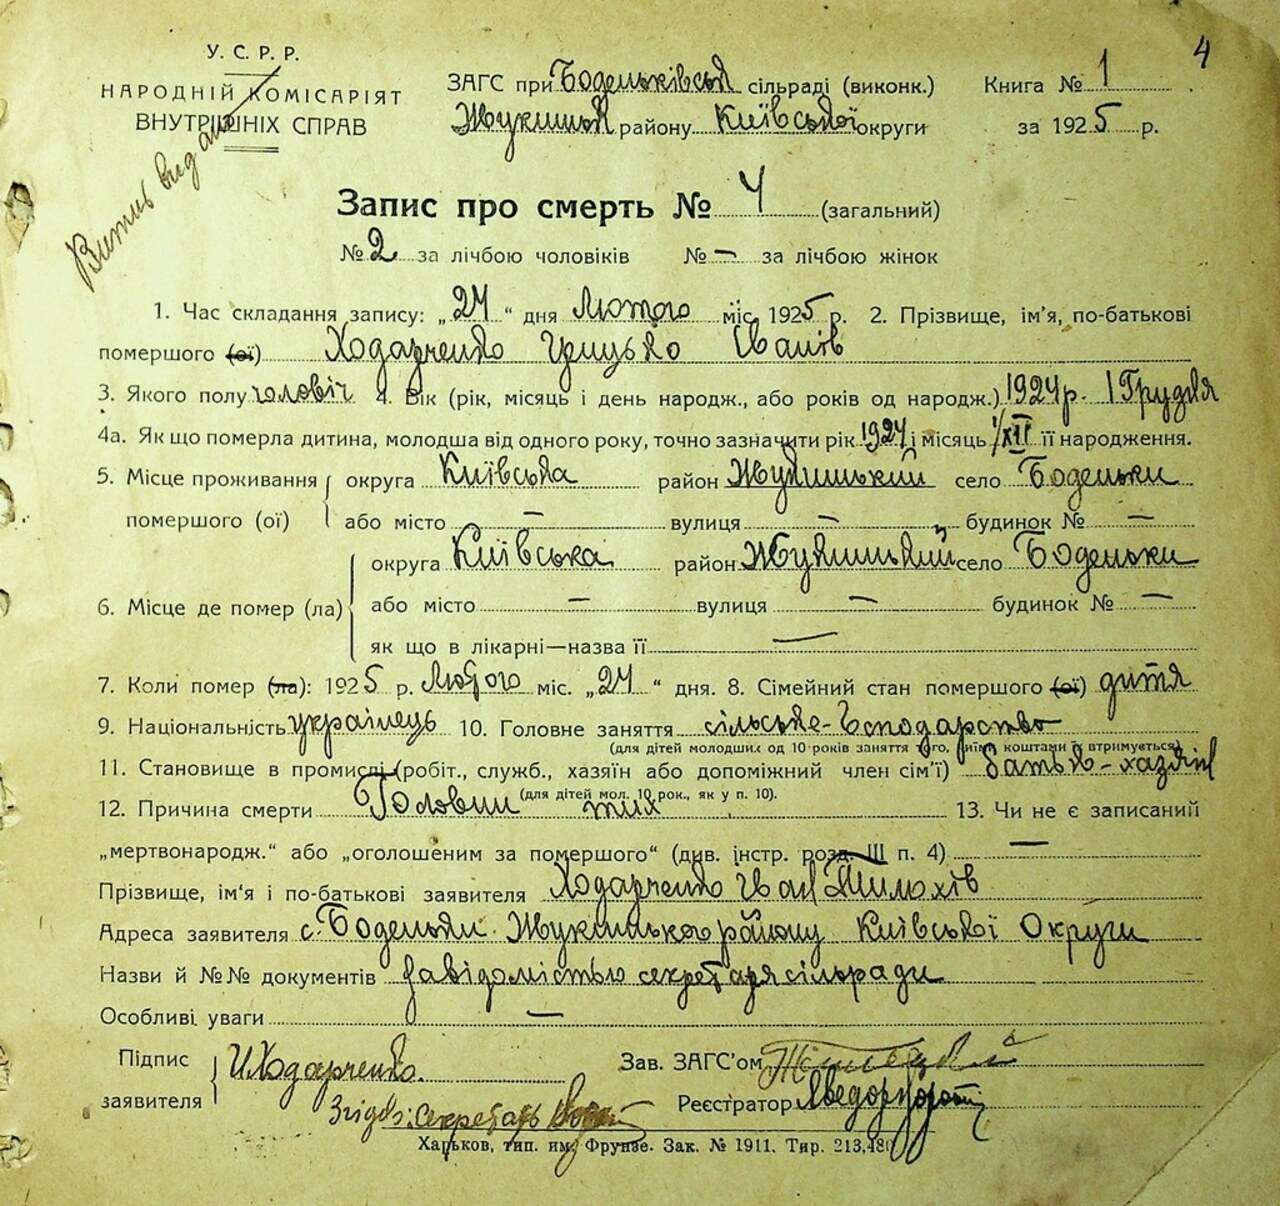 4
У. С. Р. Р.
НАРОДНІЙ КОМІСАРІЯТ
ВНУТРІШНІХ СПРАВ
ЗАГС при Боденьківській сільраді (виконк.) Книга № 1
району Київської округи за 1925 р.
Витяг видано
Запис про смерть № 4 (загальний)
№ 2 за лічбою чоловіків № — за лічбою жінок
1. Час складання запису: „24“ дня Лютого міс. 1925 р. 2. Прізвище, ім'я, по-батькові
помершого (ої) Ходарченко Грицько Іванів
3. Якого полу чоловіч 4. Вік (рік, місяць і день народж., або років од народж.) 1924 р. 1 Грудня
4а. Як що померла дитина, молодша від одного року, точно зазначити рік 1924 і місяць 1/XII її народження.
5. Місце проживання округа Київська район Жукинський село Боденьки
помершого (ої) або місто — вулиця — будинок № —
округа Київська район Жукинський село Боденьки
6. Місце де помер (ла) або місто — вулиця — будинок № —
як що в лікарні—назва її —
7. Коли помер (ла): 1925 р. Лютого міс. „24“ дня. 8. Сімейний стан помершого (ої) дитя
9. Національність українець 10. Головне заняття сільське-господарство
(для дітей молодших од 10 років заняття того, чиїм коштами їх втримується)
11. Становище в промислі (робіт., служб., хазяїн або допоміжний член сім'ї) батько-хазяїн
(для дітей мол. 10 рок., як у п. 10).
12. Причина смерти 13. Чи не є записаний
„мертвонародж.“ або „оголошеним за помершого“ (див. інстр. розд. III п. 4) —
Прізвище, ім'я і по-батькові заявителя Ходарченко Іван
Адреса заявителя с. Боденьки Жукинського району Київської Округи
Назви й №№ документів завідомістью секретаря сільради
Особливі уваги —
Підпис заявителя И Ходарченко
Зав. ЗАГС'ом
Згідно: секретарь
Реєстратор
Харьков, тип. им. Фрунзе. Зак. № 1911. Тир. 213,480